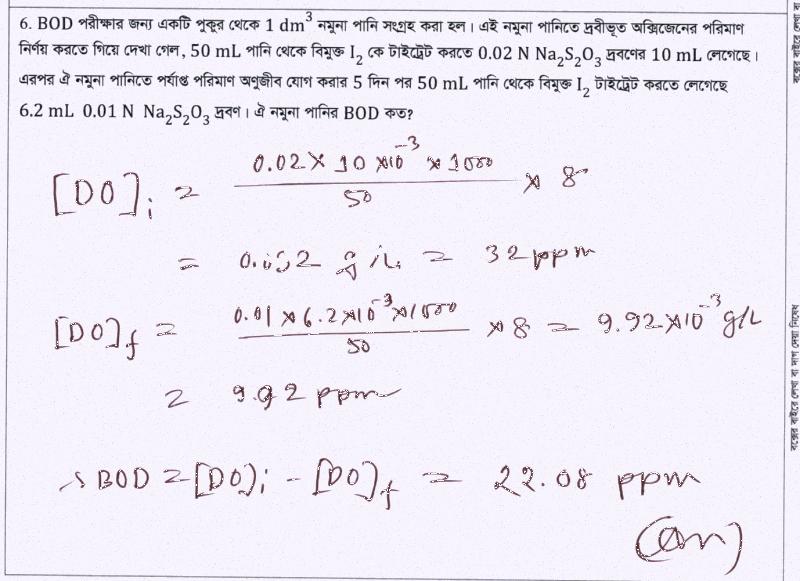 6. BOD পরীক্ষার জন্য একটি পুকুর থেকে 1 dm³ নমুনা পানি সংগ্রহ করা হল। এই নমুনা পানিতে দ্রবীভূত অক্সিজেনের পরিমাণ
নির্ণয় করতে গিয়ে দেখা গেল, 50 mL পানি থেকে বিমুক্ত I₂ কে টাইট্রেট করতে 0.02 N Na₂S₂O₃ দ্রবণের 10 mL লেগেছে।
এরপর ঐ নমুনা পানিতে পর্যাপ্ত পরিমাণ অণুজীব যোগ করার 5 দিন পর 50 mL পানি থেকে বিমুক্ত I₂ টাইট্রেট করতে লেগেছে
6.2 mL 0.01 N Na₂S₂O₃ দ্রবণ। ঐ নমুনা পানির BOD কত?
[DO]ᵢ = 0.02 × 10 ×10⁻³ × 1000 / 50 × 8
= 0.032 g/L = 32 ppm
[DO]f = 0.01 × 6.2 × 10⁻³ × 1000 / 50 × 8 = 9.92×10⁻³ g/L
= 9.92 ppm
∴ BOD = [DO]ᵢ - [DO]f = 22.08 ppm
(Ans)
বক্সের বাইরে লেখা বা দাগ দেয়া নিষেধ